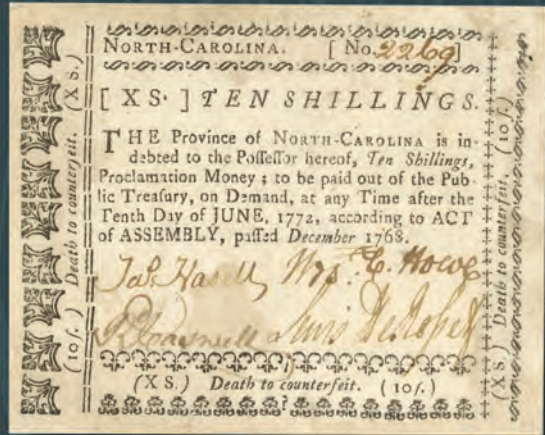 NORTH-CAROLINA. [ No. 2269 ]
[ XS. ] TEN SHILLINGS.
THE Province of NORTH-CAROLINA is in-
debted to the Poſſeſſor hereof, Ten Shillings,
Proclamation Money; to be paid out of the Pub-
lic Treaſury, on Demand, at any Time after the
Tenth Day of JUNE, 1772, according to ACT
of ASSEMBLY, paſſed December 1768.
Jas. Hasell
Lewis DeRosset
(XS.) Death to counterfeit. (10ſ.)
(10ſ.) Death to counterfeit. (XS.)
(XS.) Death to counterfeit. (10ſ.)